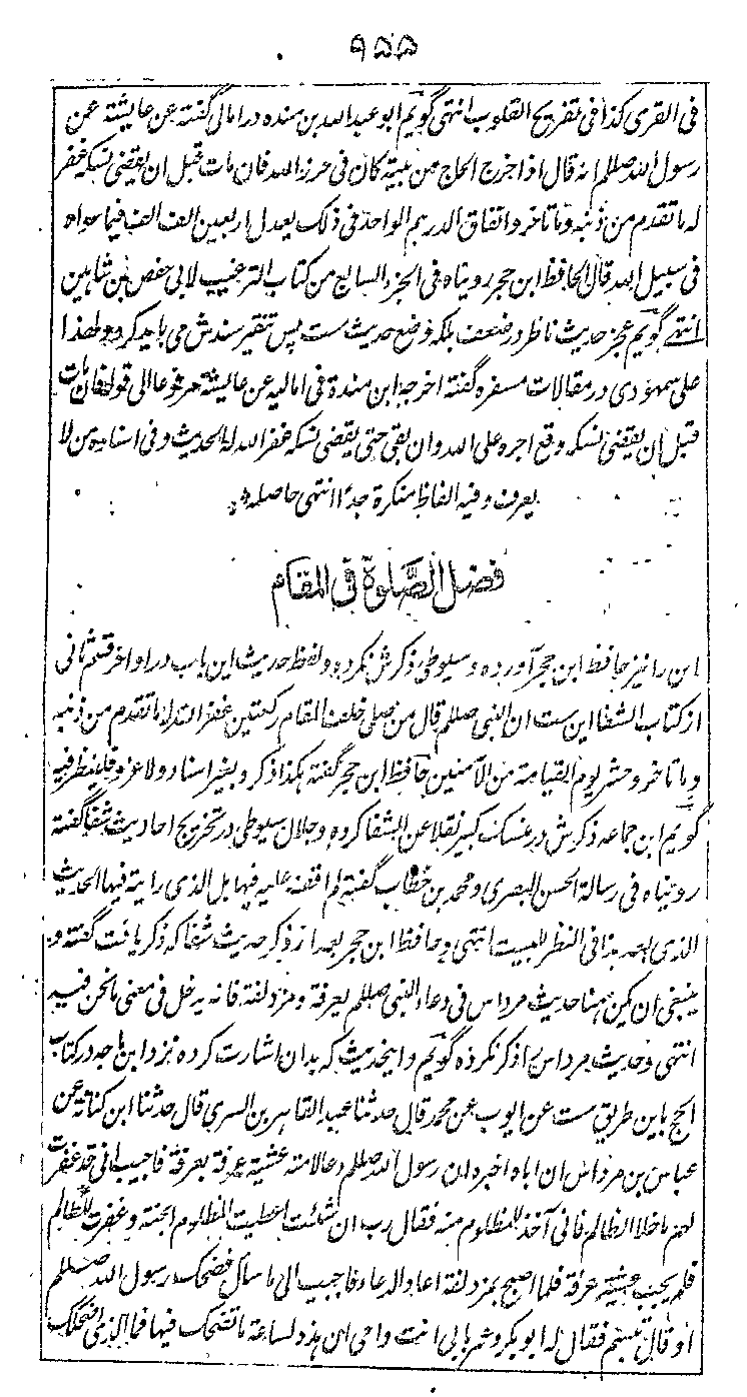 ۹۵۵
فی القری کذا فی تفریح القلوب انتہی گویم ابو عبد اللہ بن مندہ در امالی گفتہ عن عایشۃ عن
رسول اللہ صللم انہ قال اذا خرج الحاج من بیتہ کان فی حرز اللہ فان مات قبل ان یقضی نسکہ غفر
لہ ما تقدم من ذنبہ وما تاخر وانفاق الدرہم الواحد فی ذلک یعدل اربعین الف الف فیما سواہ
فی سبیل اللہ قال الحافظ ابن حجر رویناہ فی الجزء السابع من کتاب الترغیب لابی حفص بن شاہین
انتہے گویم عجز حدیث ناظر در ضعف بلکہ وضع حدیث ست پس تنقیر سندش می باید کرد ولھذا
علی سمہودی در مقالات مسفرہ گفتہ اخرجہ ابن مندۃ فی امالیہ عن عایشۃ مرفوعا الی قولہ فان مات
قبل ان یقضی نسکہ وقع اجرہ علی اللہ وان بقی حتی یقضی نسکہ غفر اللہ لہ الحدیث وفی اسنادہ من لا
یعرف وفیہ الفاظ منکرۃ جدًا انتہی حاصلہ
فضل الصَّلوۃ فی المقام
این را نیز حافظ ابن حجر آوردہ و سیوطی ذکرش نکردہ ولفظ حدیث این باب در اواخر قسم ثانی
از کتاب الشفا این ست ان النبی صللم قال من صلی خلف المقام رکعتین غفر اللہ لہ ما تقدم من ذنبہ
وما تاخر وحشر یوم القیامۃ من الآمنین حافظ ابن حجر گفتہ ہکذا ذکرہ بغیر اسناد ولا عزو فلینظر فیہ
گویم ابن جماعہ ذکرش در منسک کبیر نقلا عن الشفا کردہ وجلال سیوطی در تخریج احادیث شفا گفتہ
رویناہ فی رسالۃ الحسن البصری ومحمد بن خطاب گفتہ لم اقف علیہ فیہا بل الذی رایتہ فیہا الحدیث
الذی بعد ہذا فی النظر للبیت انتہی وحافظ ابن حجر بعد از ذکر حدیث شفا کہ ذکر یافت گفتہ و
ینبغی ان یکون ہنا حدیث مرداس فی دعاء النبی صللم بعرفۃ ومزدلفۃ فانہ یدخل فی معنی ما نحن فیہ
انتہی وحدیث مرداس را ذکر نکردہ گویم واینحدیث کہ بدان اشارت کردہ نزد ابن ماجہ در کتاب
الحج باین طریق ست عن ایوب عن محمد قال حدثنا عبد القاہر بن السری قال حدثنا ابن کنانۃ عن
عباس بن مرداس ان اباہ اخبرہ ان رسول اللہ صللم دعا لامتہ عشیۃ عرفۃ بعرفۃ فاجیب انی قد غفرت
لہم ما خلا الظالم فانی آخذ للمظلوم منہ فقال رب ان شئت اعطیت المظلوم الجنۃ وغفرت للظالم
فلم یجب عشیۃ عرفۃ فلما اصبح بمزدلفۃ اعاد الدعاء فاجیب الی ما سال فضحک رسول اللہ صللم
او قال تبسم فقال لہ ابو بکر وعمر بابی انت وامی ان ہذہ لساعۃ ما تضحک فیہا فما الذی اضحکک